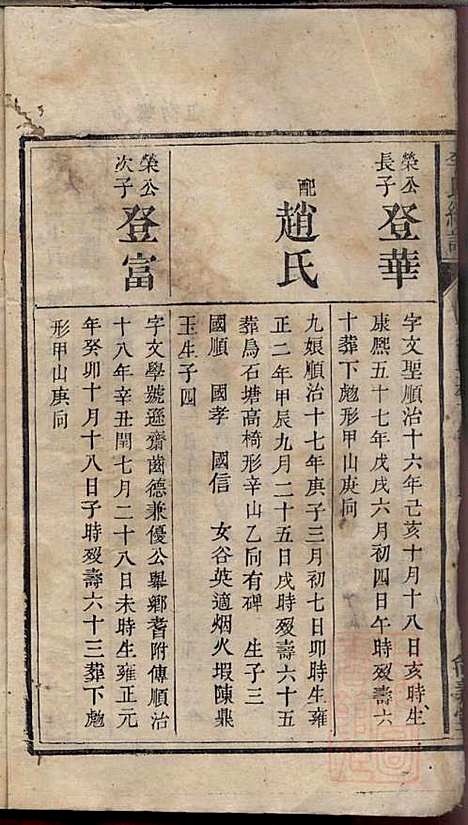 榮公長子
登華
字文聖順治十六年己亥十月十八日亥時生
康熙五十七年戊戌六月初四日午時歿壽六
十葬下形甲山庚向
配
趙氏
九娘順治十七年庚子三月初七日卯時生雍
正二年甲辰九月二十五日戌時歿壽六十五
葬鳥石塘高椅形辛山乙向有碑 生子三
國順 國孝 國信 女谷英適烟火塅陳鼎
玉生子四
榮公次子
登富
字文學號遜齋齒德兼優公舉鄉耆附傳順治
十八年辛丑閏七月二十八日未時生雍正元
年癸卯十月十八日子時歿壽六十三葬下
形甲山庚向